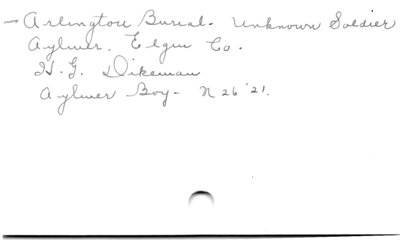 - Arlington Burial - Unknown Soldier
Aylmer. Elgin Co.
H. G. Dikeman
Aylmer Boy - N 26 '21.